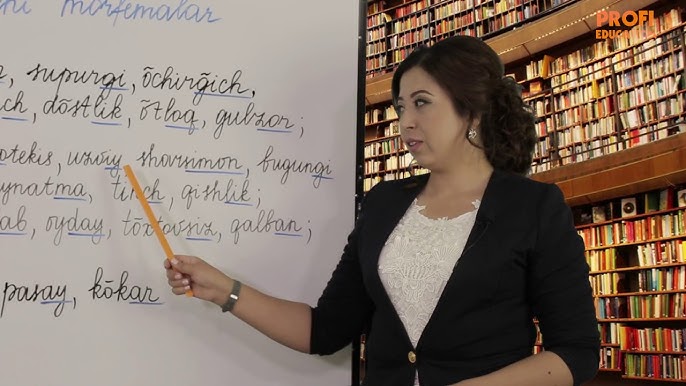 morfemalar
supurgi, ōchirḡich,
ch, dōstlik, ōtloq, gulzor;
otekis, uzviy, sharsimon, bugungi
ynatma, tinch, qishlik;
ab, oyday, tōxtovsiz, qalban;
pasay, kōkar
PROFI